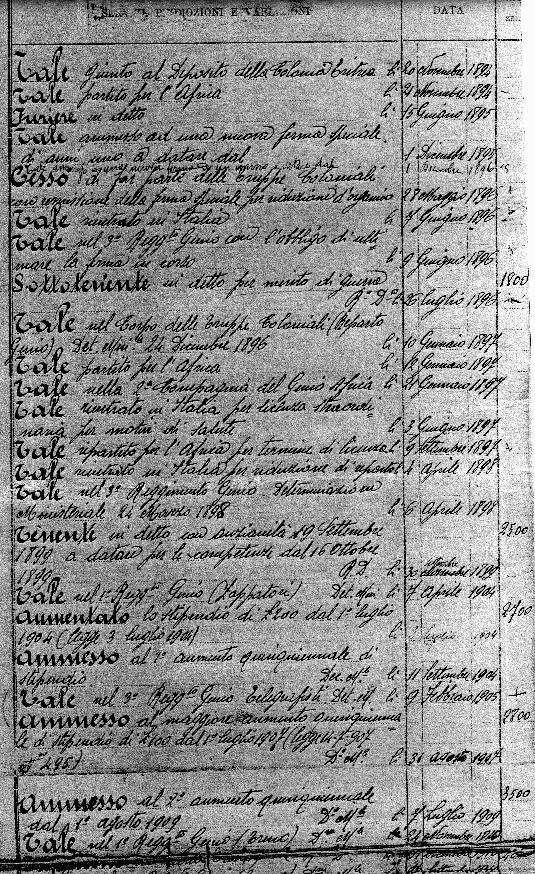 PROMOZIONI E VARIAZIONI
DATA
Tale giunto al Deposito della Colonia Eritrea li 20 Novembre 1894
Tale partito per l'Africa li 21 Novembre 1894
Furiere in detto li 15 Giugno 1895
Tale ammesso ad una nuova ferma speciale
di anni uno a datare dal 1 Dicembre 1895
1 Dicembre 1896
Cesso di far parte delle Truppe Coloniali
con rescissione della ferma speciale per riduzione d'organico 28 Maggio 1896
Tale rientrato in Italia li 8 Giugno 1896
Tale nel 3° Regg.to Genio con l'obbligo di ulti
mare la ferma in corso li 9 Giugno 1896
Sottotenente in detto per merito di guerra 1800
R. D. li 26 Luglio 1896
Tale nel Corpo delle Truppe Coloniali (Reparto
Genio) Det. Min. 24 Dicembre 1896 li 10 Gennaio 1897
Tale partito per l'Africa li 12 Gennaio 1897
Tale nella 2a Compagnia del Genio Africa li 21 Gennaio 1897
Tale rientrato in Italia per licenza straordi
naria per motivi di salute li 3 Giugno 1897
Tale ripartito per l'Africa per termine di licenza li 9 Settembre 1897
Tale rientrato in Italia per riduzione di reparto li 4 Aprile 1898
Tale nel 3° Reggimento Genio Determinazione
Ministeriale 24 Marzo 1898 li 6 Aprile 1898
Tenente in detto con anzianità 19 Settembre 2500
1899 a datare per le competenze dal 16 Ottobre
1899 R.D. li 30 Settembre 1899
Tale nel 1° Regg.to Genio (Zappatori) Det. Min. li 7 Aprile 1904
Aumentato lo stipendio di £200 dal 1° luglio 2700
1904 (legge 3 luglio 1904) li luglio 1904
Ammesso al 1° aumento quinquennale di
stipendio Det. M.le li 11 Settembre 1904
Tale nel 3° Regg.to Genio Telegrafisti Det. M. li 9 Febbraio 1905
Ammesso al maggiore aumento quinquenna 2800
le di stipendio di £100 dal 1° luglio 1907 (legge 14-7-907
N° 495) D.o M.le li 31 Agosto 1907
Ammesso al 2° aumento quinquennale 3500
dal 1° agosto 1909 D.o M.le li 7 Luglio 1909
Tale nel 1° Regg.to Genio (Treno) D.o M.le li 21 Novembre